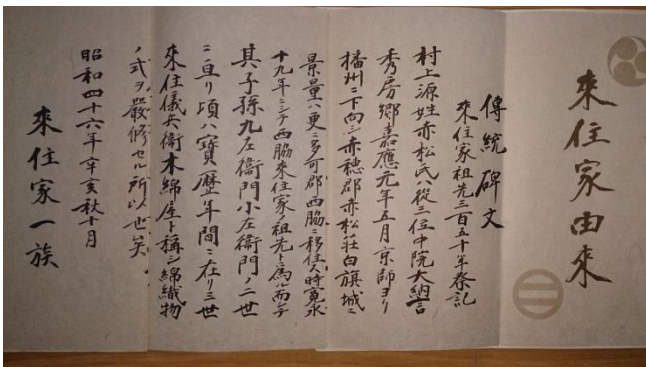 來住家由來
傳統碑文
來住家祖先三百五十年祭記
村上源姓赤松氏ハ從三位中院大納言
秀房郷嘉應元年五月京師ヨリ
播州ニ下向シ赤穂郡赤松莊白旗城ニ
景量ハ更ニ多可郡西脇ニ移住ス時寛永
十九年ニシテ西脇來住家ノ祖先ト為ル而シテ
其子孫九左衞門小左衞門ノ二世
ニ亘リ頃ハ寶歴年間ニ在リ三世
來住儀兵衞木綿屋ト稱シ綿織物
ノ式ヲ嚴修セル所以也矣
昭和四十六年辛亥秋十月
來住家一族